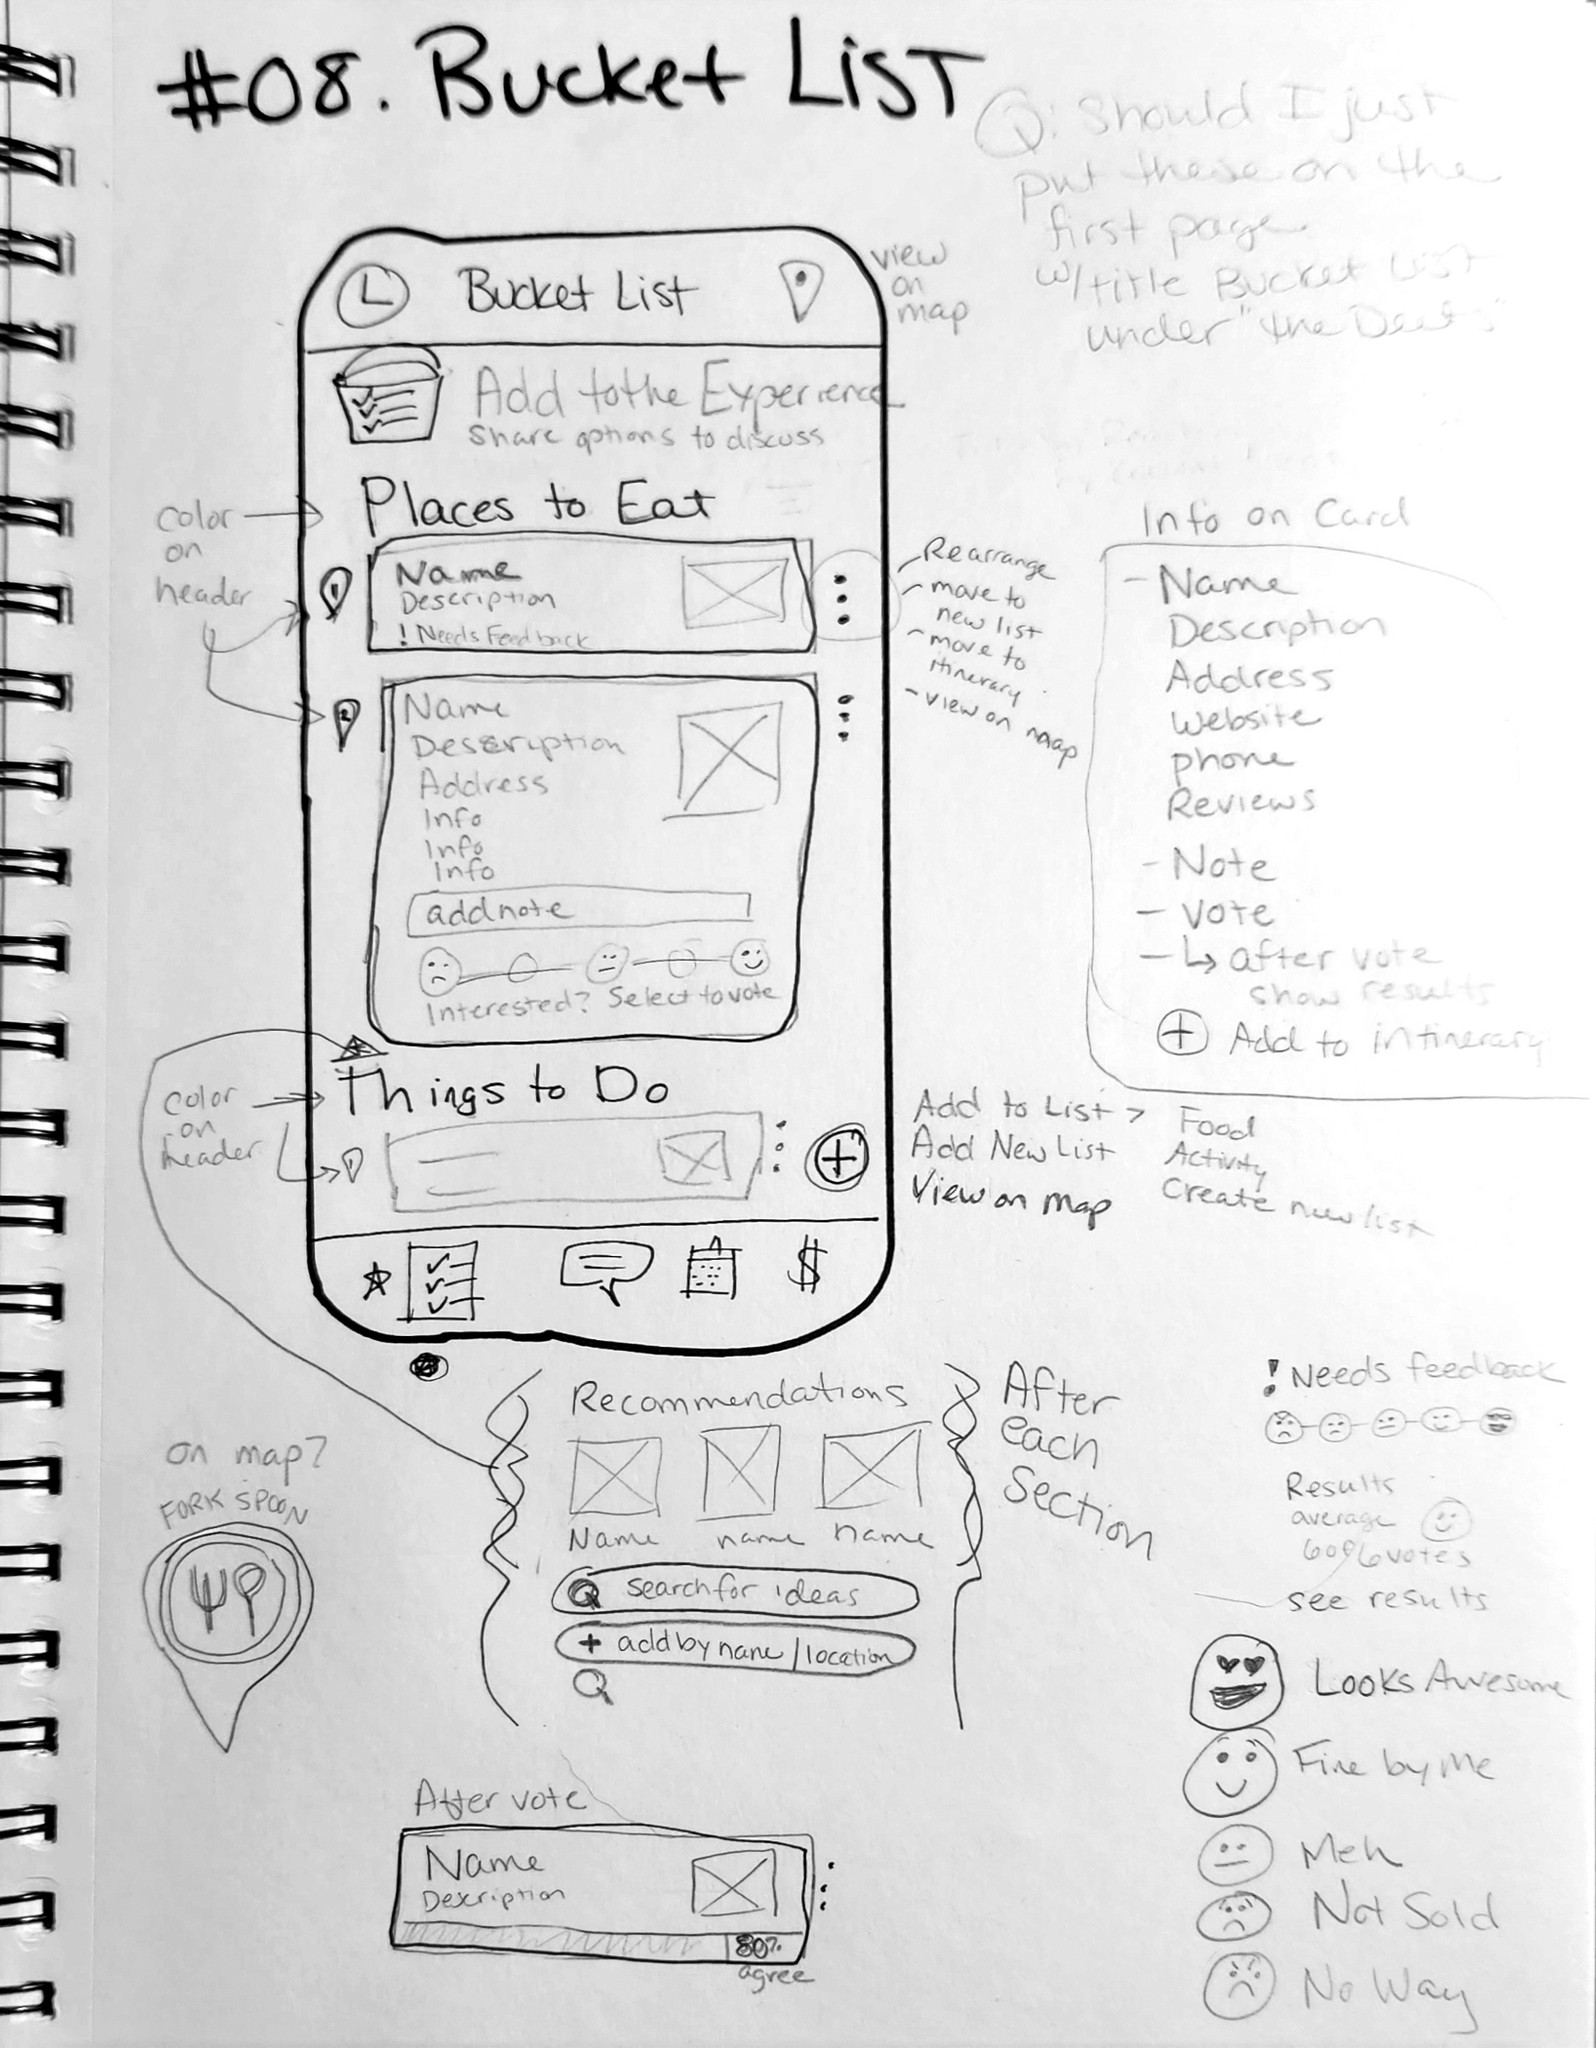 #08. Bucket List
Q: Should I just
put these on the
first page
w/title Bucket List
under "the Deets"
Bucket List
view
on
map
Add to the Experience
Share options to discuss
Places to Eat
color
on
header
1
Name
Description
! Needs Feedback
Rearrange
- move to
new list
- move to
itinerary
- view on map
2
Name
Description
Address
Info
Info
Info
add note
Interested? Select to vote
Info on Card
- Name
Description
Address
website
phone
Reviews
- Note
- Vote
- ↳ after vote
show results
+ Add to intinerary
Things to Do
color
on
header
1
+
Add to List >
Add New List
View on map
Food
Activity
Create new list
$
Recommendations
Name name name
After
each
Section
search for ideas
+ add by name/location
! Needs feedback
Results
average
6 of 6 votes
see results
on map?
FORK SPOON
Looks Awesome
Fine by Me
Meh
Not Sold
No Way
After vote
Name
Description
80%
agree